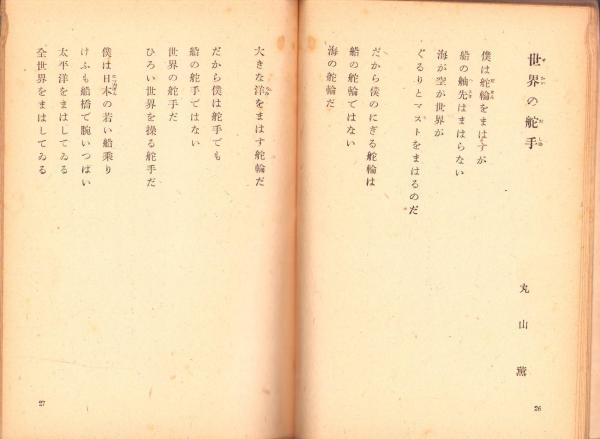 世界の舵手
丸山薫
僕は舵輪をまはすが
船の舳先はまはらない
海が空が世界が
ぐるりとマストをまはるのだ
だから僕のにぎる舵輪は
船の舵輪ではない
海の舵輪だ
26
大きな洋をまはす舵輪だ
だから僕は舵手でも
船の舵手ではない
世界の舵手だ
ひろい世界を操る舵手だ
僕は日本の若い船乗り
けふも船橋で腕いつぱい
太平洋をまはしてゐる
全世界をまはしてゐる
27